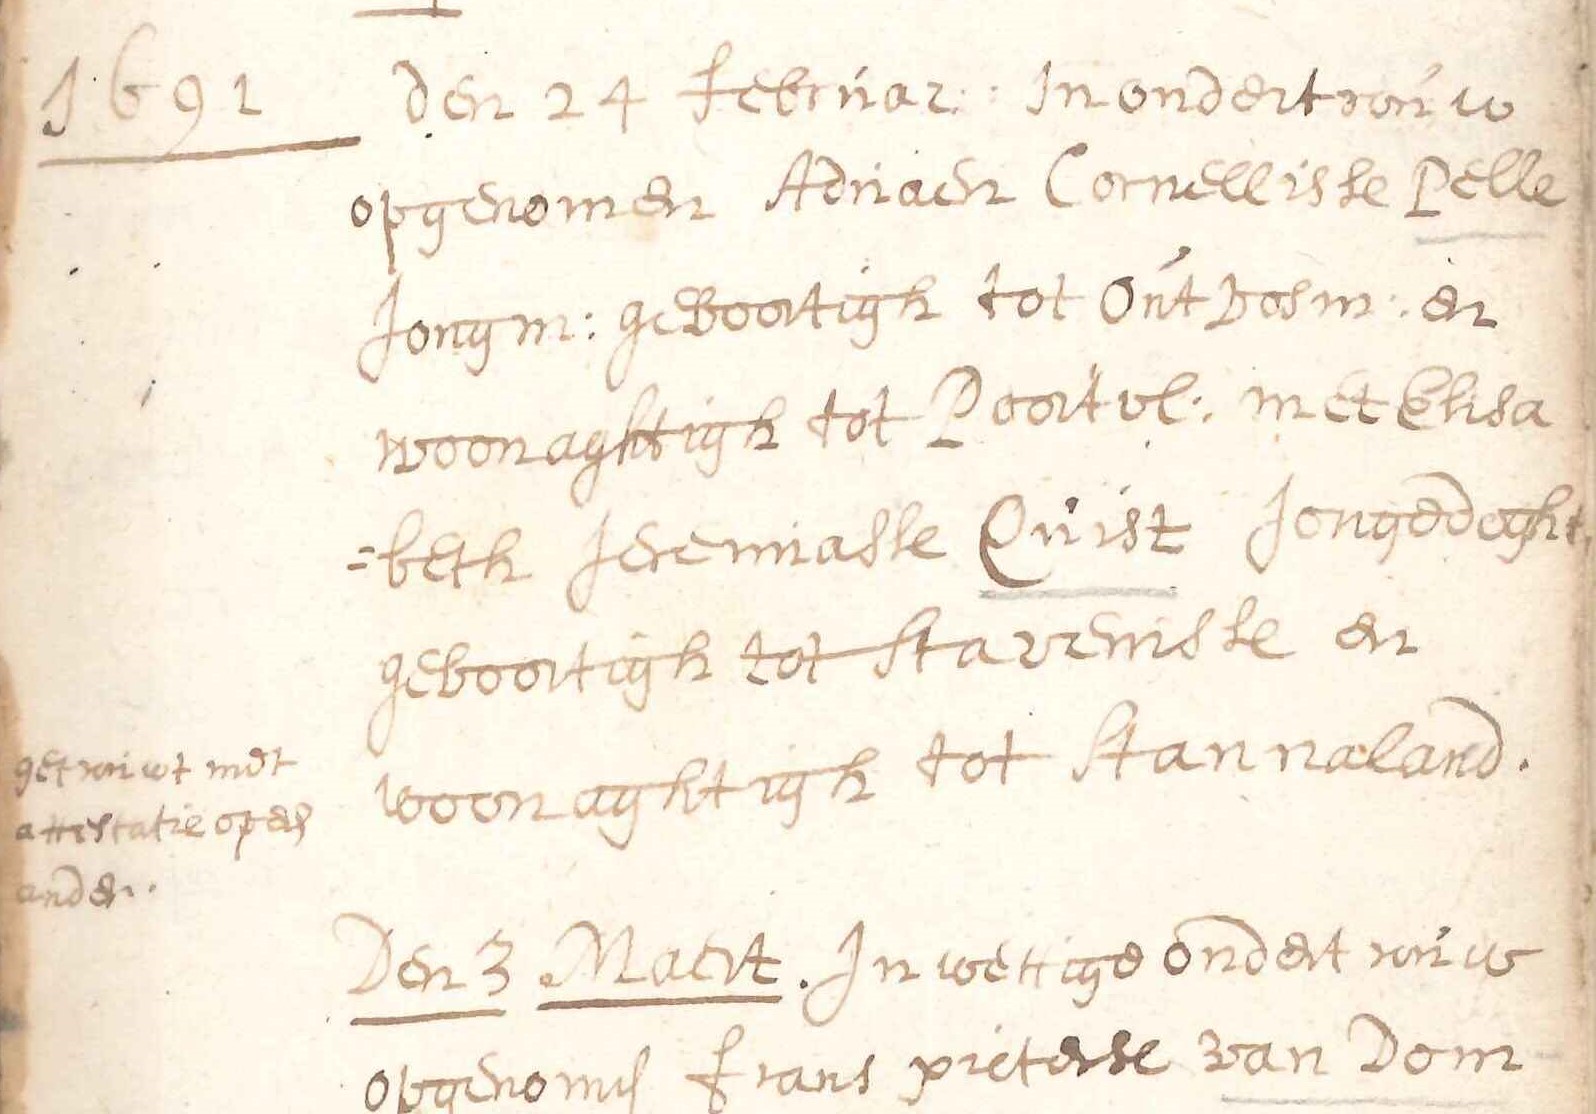 1691 den 24 februar: In ondertrouw
opgenomen Adriaen Cornellisse Pelle
Jongm: geboortigh tot Outvosm: en
woonaghtigh tot Poortvl: met Elisa
=beth Jeremiasse Quist Jongedoght,
geboortigh tot Stavenisse en
woonaghtigh tot Stannaland.
getrouwt met
attestatie op een
ander.
Den 3 Maert. In wettige ondertrouw
opgenomen frans pieterse van Dom